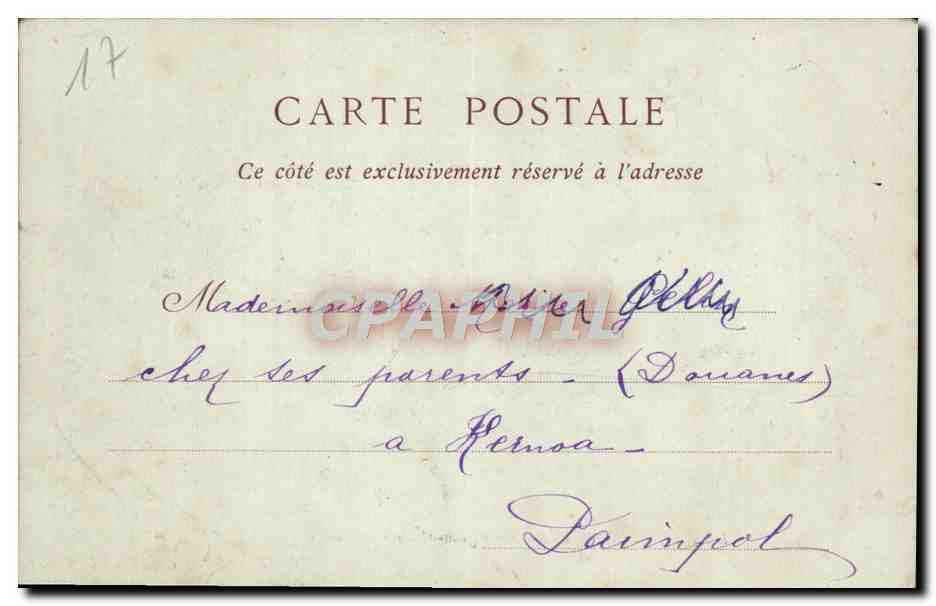 17
CARTE POSTALE
Ce côté est exclusivement réservé à l'adresse
Mademoiselle
CPAPHIL
chez ses parents - (Douanes)
a Kernoa -
Paimpol